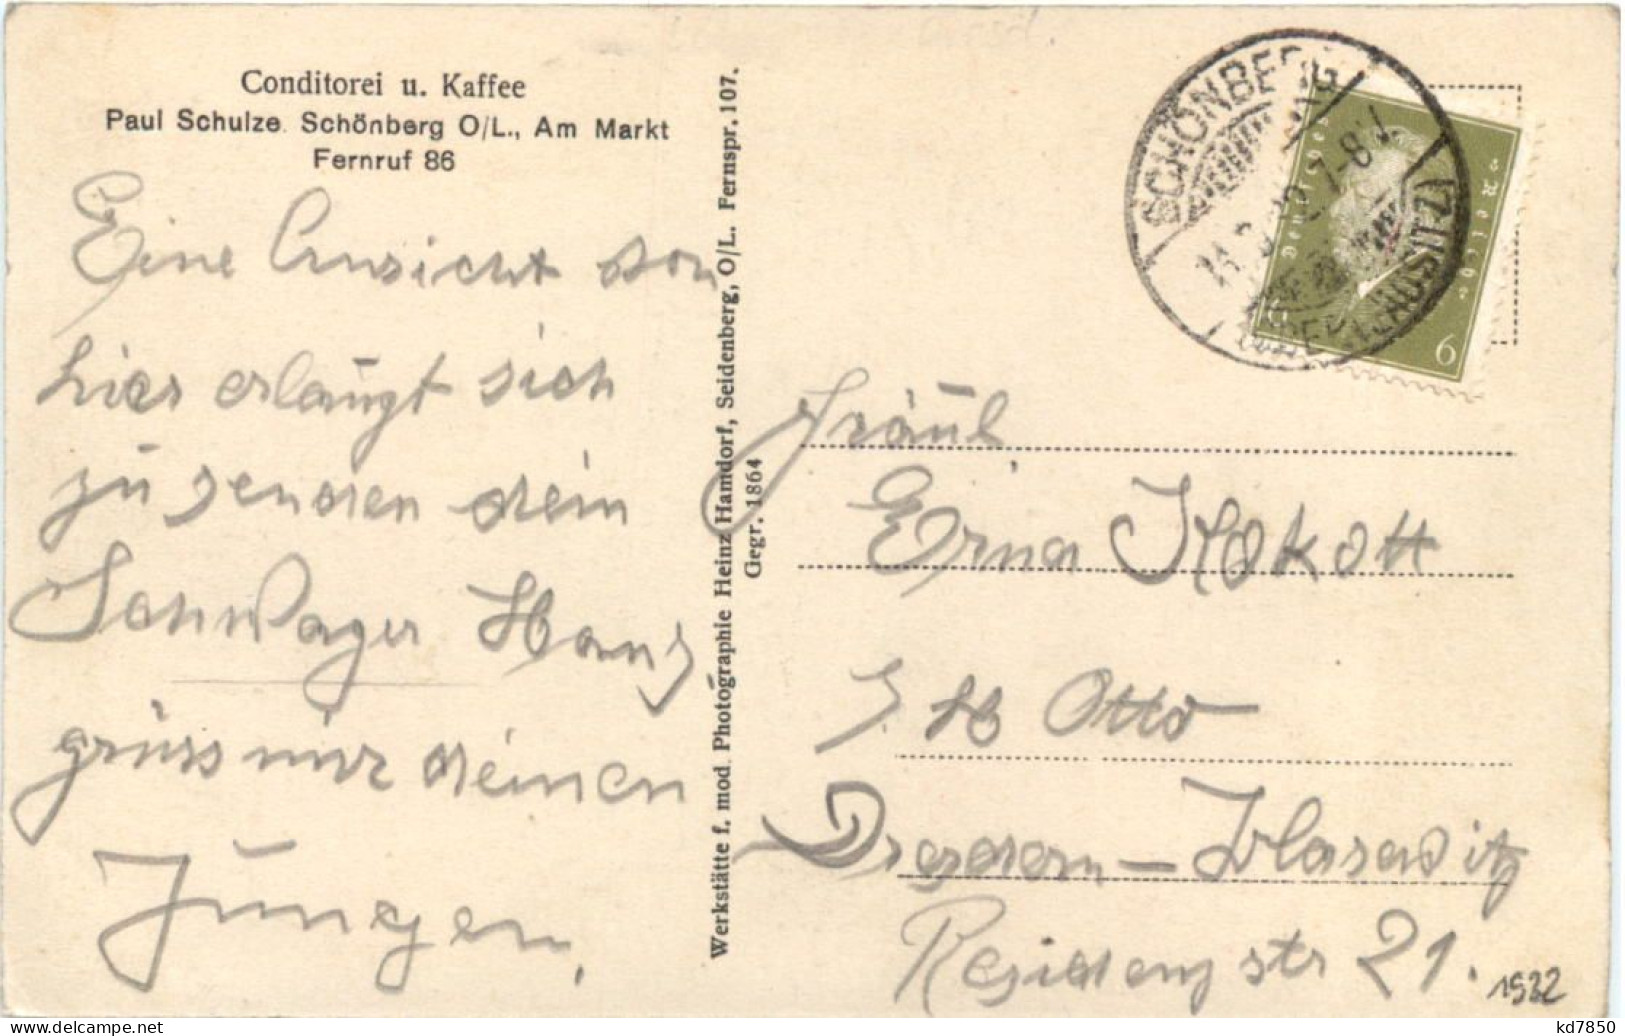 Conditorei u. Kaffee
Paul Schulze. Schönberg O/L., Am Markt
Fernruf 86
Eine Ansicht von
hier erlaubt sich
zu senden dein
Schwager Hans
grüss mir deinen
Jungen.
Werkstätte f. mod. Photographie Heinz Hamdorf, Seidenberg, O/L. Fernspr. 107.
Gegr. 1864
SCHÖNBERG
7-8 V.
OBERLAUSITZ
Deutsches Reich
6
Fräul
Erna Kokott
Otto
Dresden - Blasewitz
Residenzstr 21.
1932
kd7850